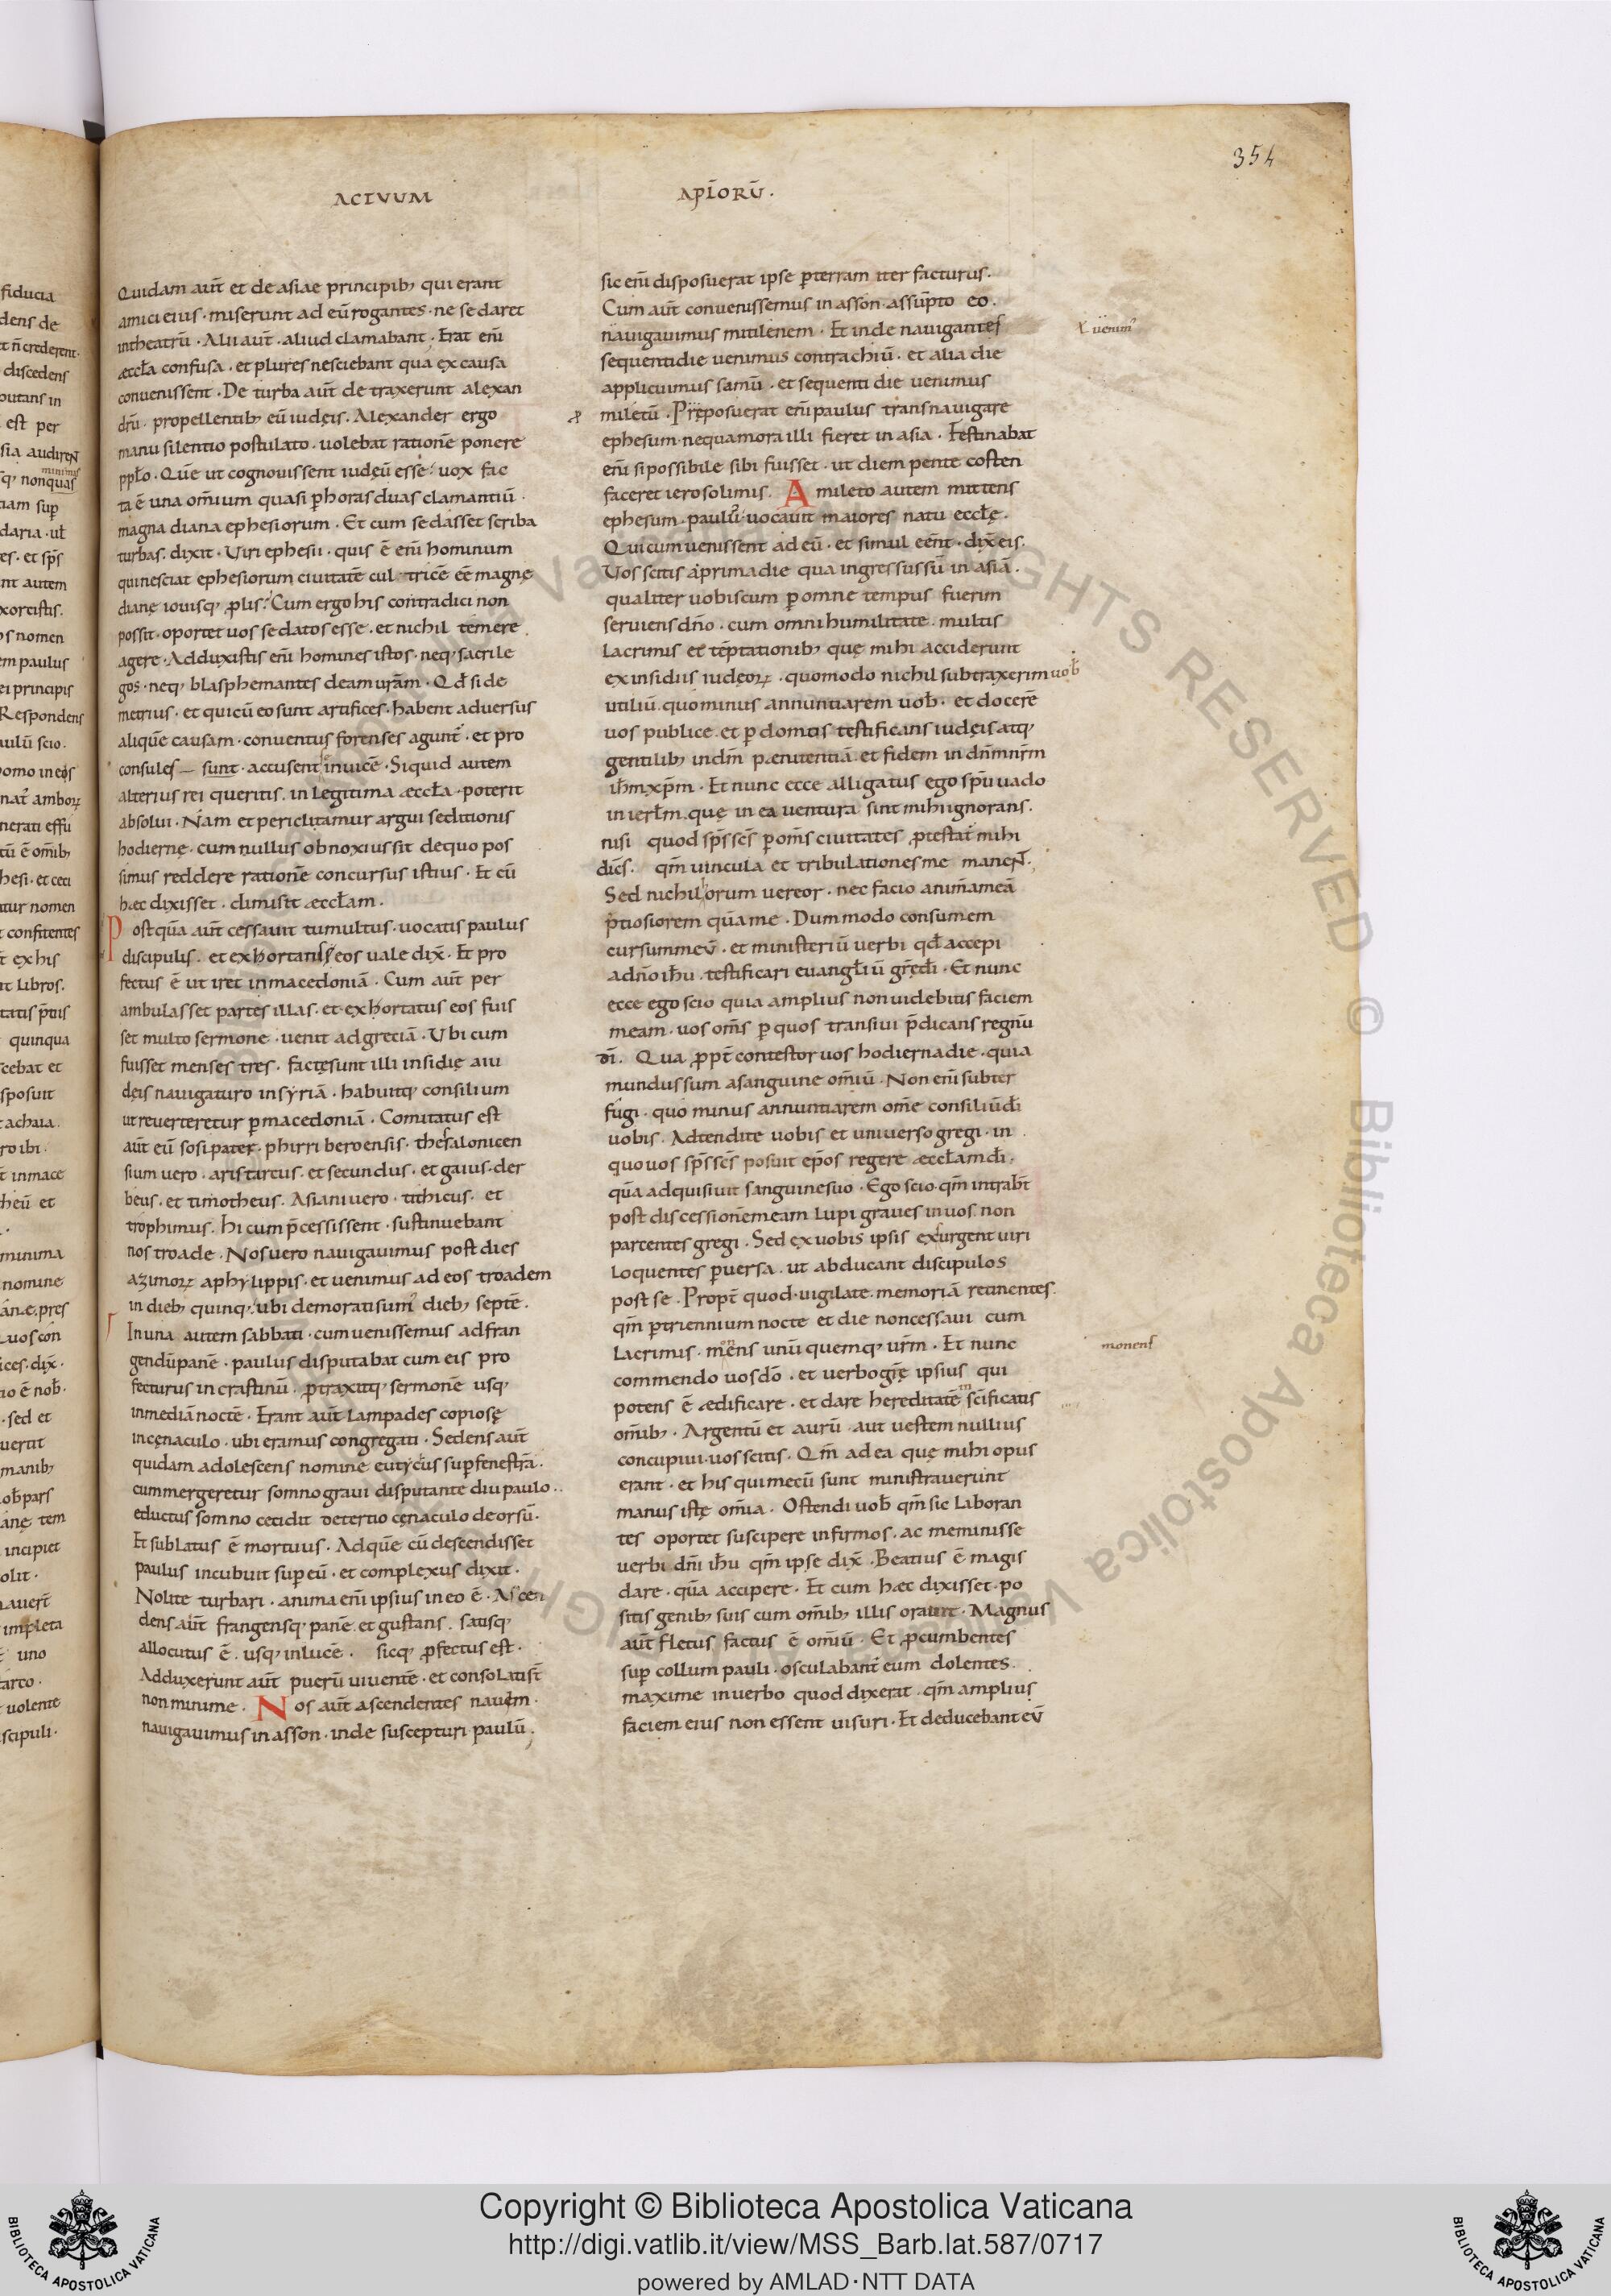 354
ACTVUM
APL̄ORŪ.
Quidam aut̄ et de asiae principib; qui erant
amici eius · miserunt ad eū rogantes · ne se daret
in theatrū · Alii aut̄ · aliud clamabant · Erat eni̅
æccl̄a confusa · et plures nesciebant qua ex causa
conuenissent · De turba aut̄ detraxerunt alexan
drū · propellentib; eū iudęis · Alexander ergo
manu silentio postulato · uolebat rationē ponere
ppl̄o · Quē ut cognouissent iudęū esse · uox fac
ta ē una om̄ium quasi p̄ horas duas clamantiū ·
magna diana ephesiorum · Et cum sedasset scriba
turbas · dixit · Uiri ephesii · quis ē eni̅ hominum
qui nesciat ephesiorum ciuitatē cultricē eē magnę
dianę iouisq; ꝓlis · Cum ergo his contradici non
possit · oportet uos sedatos esse · et nichil temere
agere · Adduxistis eni̅ homines istos · neq; sacrile
gos · neq; blasphemantes deam ur̄am · Qd̄ si de
metrius · et qui cū eo sunt artifices · habent aduersus
aliquē causam · conuentus forenses agunt̄ · et pro
consules — sunt · accusent inuicē · Si quid autem
alterius rei queritis · in legitima æccl̄a · poterit
absolui · Nam et periclitamur argui seditionis
hodiernę · cum nullus obnoxius sit de quo pos
simus reddere rationē concursus istius · Et cū
hæc dixisset · dimisit æccl̄am ·
Postquā aut̄ cessauit tumultus · uocatis paulus
discipulis · et exhortans eos uale dix̄ · Et pro
fectus ē ut iret in macedoniā · Cum aut̄ per
ambulasset partes illas · et exhortatus eos fuis
set multo sermone · uenit ad greciā · Ubi cum
fuisset menses tres · factę sunt illi insidię a iu
dęis nauigaturo in syriā · habuitq; consilium
ut reuerteretur p̄ macedoniā · Comitatus est
aut̄ eū sosipater · phirri beroensis · thessalonicen
sium uero · aristarcus · et secundus · et gaius · der
beus · et timotheus · Asiani uero · tithicus · et
trophimus · hi cum p̄cessissent · sustinuebant
nos troade · Nos uero nauigauimus post dies
azimoꝝ a phylippis · et uenimus ad eos troadem
in dieb; quinq; ubi demorati sum' dieb; septē ·
In una autem sabbati · cum uenissemus ad fran
gendū panē · paulus disputabat cum eis pro
fecturus in crastinū · ꝓtraxitq; sermonē usq;
in mediā noctē · Erant aut̄ lampades copiosę
in cęnaculo · ubi eramus congregati · Sedens aut̄
quidam adolescens nomine euticus sup̄ fenestrā ·
cum mergeretur somno graui disputante diu paulo ··
eductus somno cecidit de tertio cęnaculo deorsū ·
Et sublatus ē mortuus · Ad quē cū descendisset
paulus incubuit sup̄ eū · et complexus dixit ·
Nolite turbari · anima eni̅ ipsius in eo ē · Ascen
dens aut̄ frangensq; panē et gustans · satisq;
allocutus ē · usq; in lucē · sicq; ꝓfectus est ·
Adduxerunt aut̄ puerū uiuentē · et consolati st̄
non minime · Nos aut̄ ascendentes nauem ·
nauigauimus in asson · inde suscepturi paulū ·
sic eni̅ disposuerat ipse p̄ terram iter facturus ·
Cum aut̄ conuenissemus in asson · assūpto eo ·
nauigauimus mitilenem · Et inde nauigantes
uenim'
sequenti die uenimus contra chiū · et alia die
applicuimus samū · et sequenti die uenimus
miletū · Pręposuerat eni̅ paulus transnauigare
ephesum · nequa mora illi fieret in asia · Festinabat
eni̅ si possibile sibi fuisset · ut diem pentecosten
faceret ierosolimis · A mileto autem mittens
ephesum · paulus uocauit maiores natu eccl̄ę ·
Qui cum uenissent ad eū · et simul eēnt · dix̄ eis ·
Uos scitis a prima die qua ingressus sū in asiā ·
qualiter uobiscum p̄ omne tempus fuerim
seruiens dn̄o · cum omni humilitate · multis
lacrimis et tēptationib; quę mihi acciderunt
ex insidiis iudęoꝝ · quomodo nichil subtraxerim uob̄
utiliū · quominus annuntiarem uob̄ · et docerē
uos publice · et p̄ domos testificans iudęis atq;
gentilib; in dm̄ pænitentiā et fidem in dn̄m nr̄m
ih̄m xp̄m · Et nunc ecce alligatus ego sp̄u uado
in ierl̄m · quę in ea uentura sint mihi ignorans ·
nisi quod sp̄s sc̄s p̄ om̄s ciuitates ꝓtestat̄ mihi
dic̄s · qm̄ uincula et tribulationes me manent ·
Sed nichil horum uereor · nec facio animā meā
p̄tiosiorem quā me · Dum modo consumem
cursum meū · et ministeriū uerbi qd̄ accepi
a dn̄o ih̄u · testificari euangl̄iū grę̄ di̅ · Et nunc
ecce ego scio quia amplius non uidebitis faciem
meam · uos om̄s p̄ quos transiui p̄dicans regnū
di̅ · Qua ꝓpt̄ contestor uos hodierna die · quia
mundus sum a sanguine om̄iū · Non eni̅ subter
fugi · quo minus annuntiarem om̄e consiliū di̅
uobis · Adtendite uobis et uniuerso gregi · in
quo uos sp̄s sc̄s posuit ep̄os regere æccl̄am di̅ ·
quā adquisiuit sanguine suo · Ego scio qm̄ intrab̄t
post discessionē meam lupi graues in uos non
parcentes gregi · Sed ex uobis ipsis exsurgent uiri
loquentes p̄uersa · ut abducant discipulos
post se · Propt̄ quod · uigilate · memoriā retinentes ·
qm̄ p̄ triennium nocte et die non cessaui cum
lacrimis · monens unū quemq; ur̄m · Et nunc
monens
commendo uos do̅ · et uerbo gr̄ę ipsius qui
potens ē ædificare · et dare hereditatē in sc̄ificatis
om̄ib; · Argentū et aurū aut uestem nullius
concupiui · uos scitis · Qm̄ ad ea quę mihi opus
erant · et his qui mecū sunt ministrauerunt
manus istę om̄ia · Ostendi uob̄ qm̄ sic laboran
tes oportet suscipere infirmos · ac meminisse
uerbi dn̄i ih̄u qm̄ ipse dix̄ · Beatius ē magis
dare · quā accipere · Et cum hæc dixisset · po
sitis genib; suis cum om̄ib; illis orauit · Magnus
aut̄ fletus factus ē om̄iū · Et ꝓcumbentes
sup̄ collum pauli · osculabant̄ eum dolentes ·
maxime in uerbo quod dixerat · qm̄ amplius
faciem eius non essent uisuri · Et deducebant eū
Copyright © Biblioteca Apostolica Vaticana
http://digi.vatlib.it/view/MSS_Barb.lat.587/0717
powered by AMLAD·NTT DATA
BIBLIOTECA APOSTOLICA VATICANA
BIBLIOTECA APOSTOLICA VATICANA